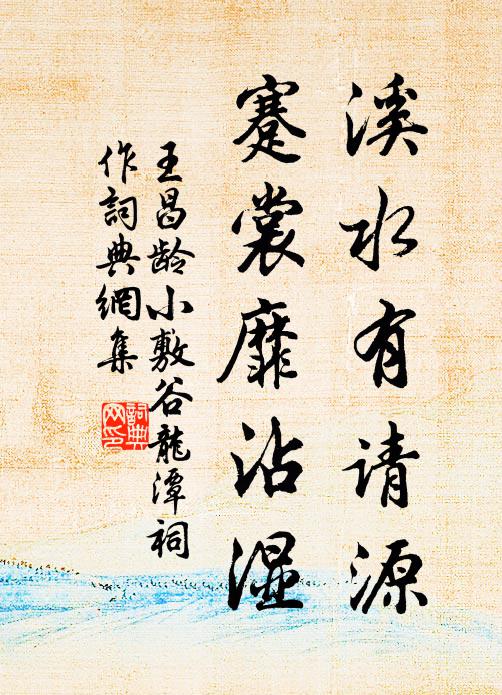 溪水有请源
蹇裳靡沾湿
王昌龄小敷谷龍潭祠
作詞典網集
詞典网印